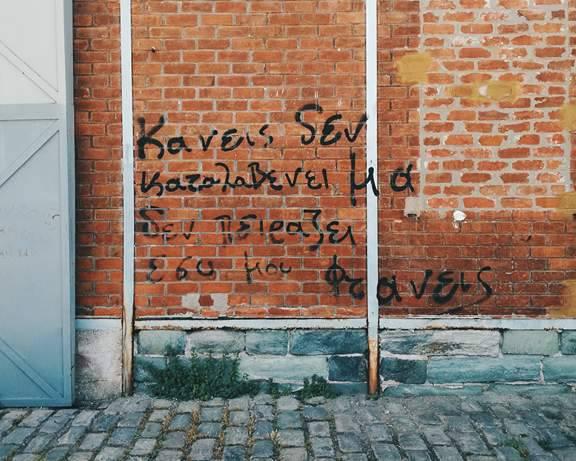 Κανεις δεν
καταλαβενει μα
δεν πειραζει
εσυ μου φτανεις